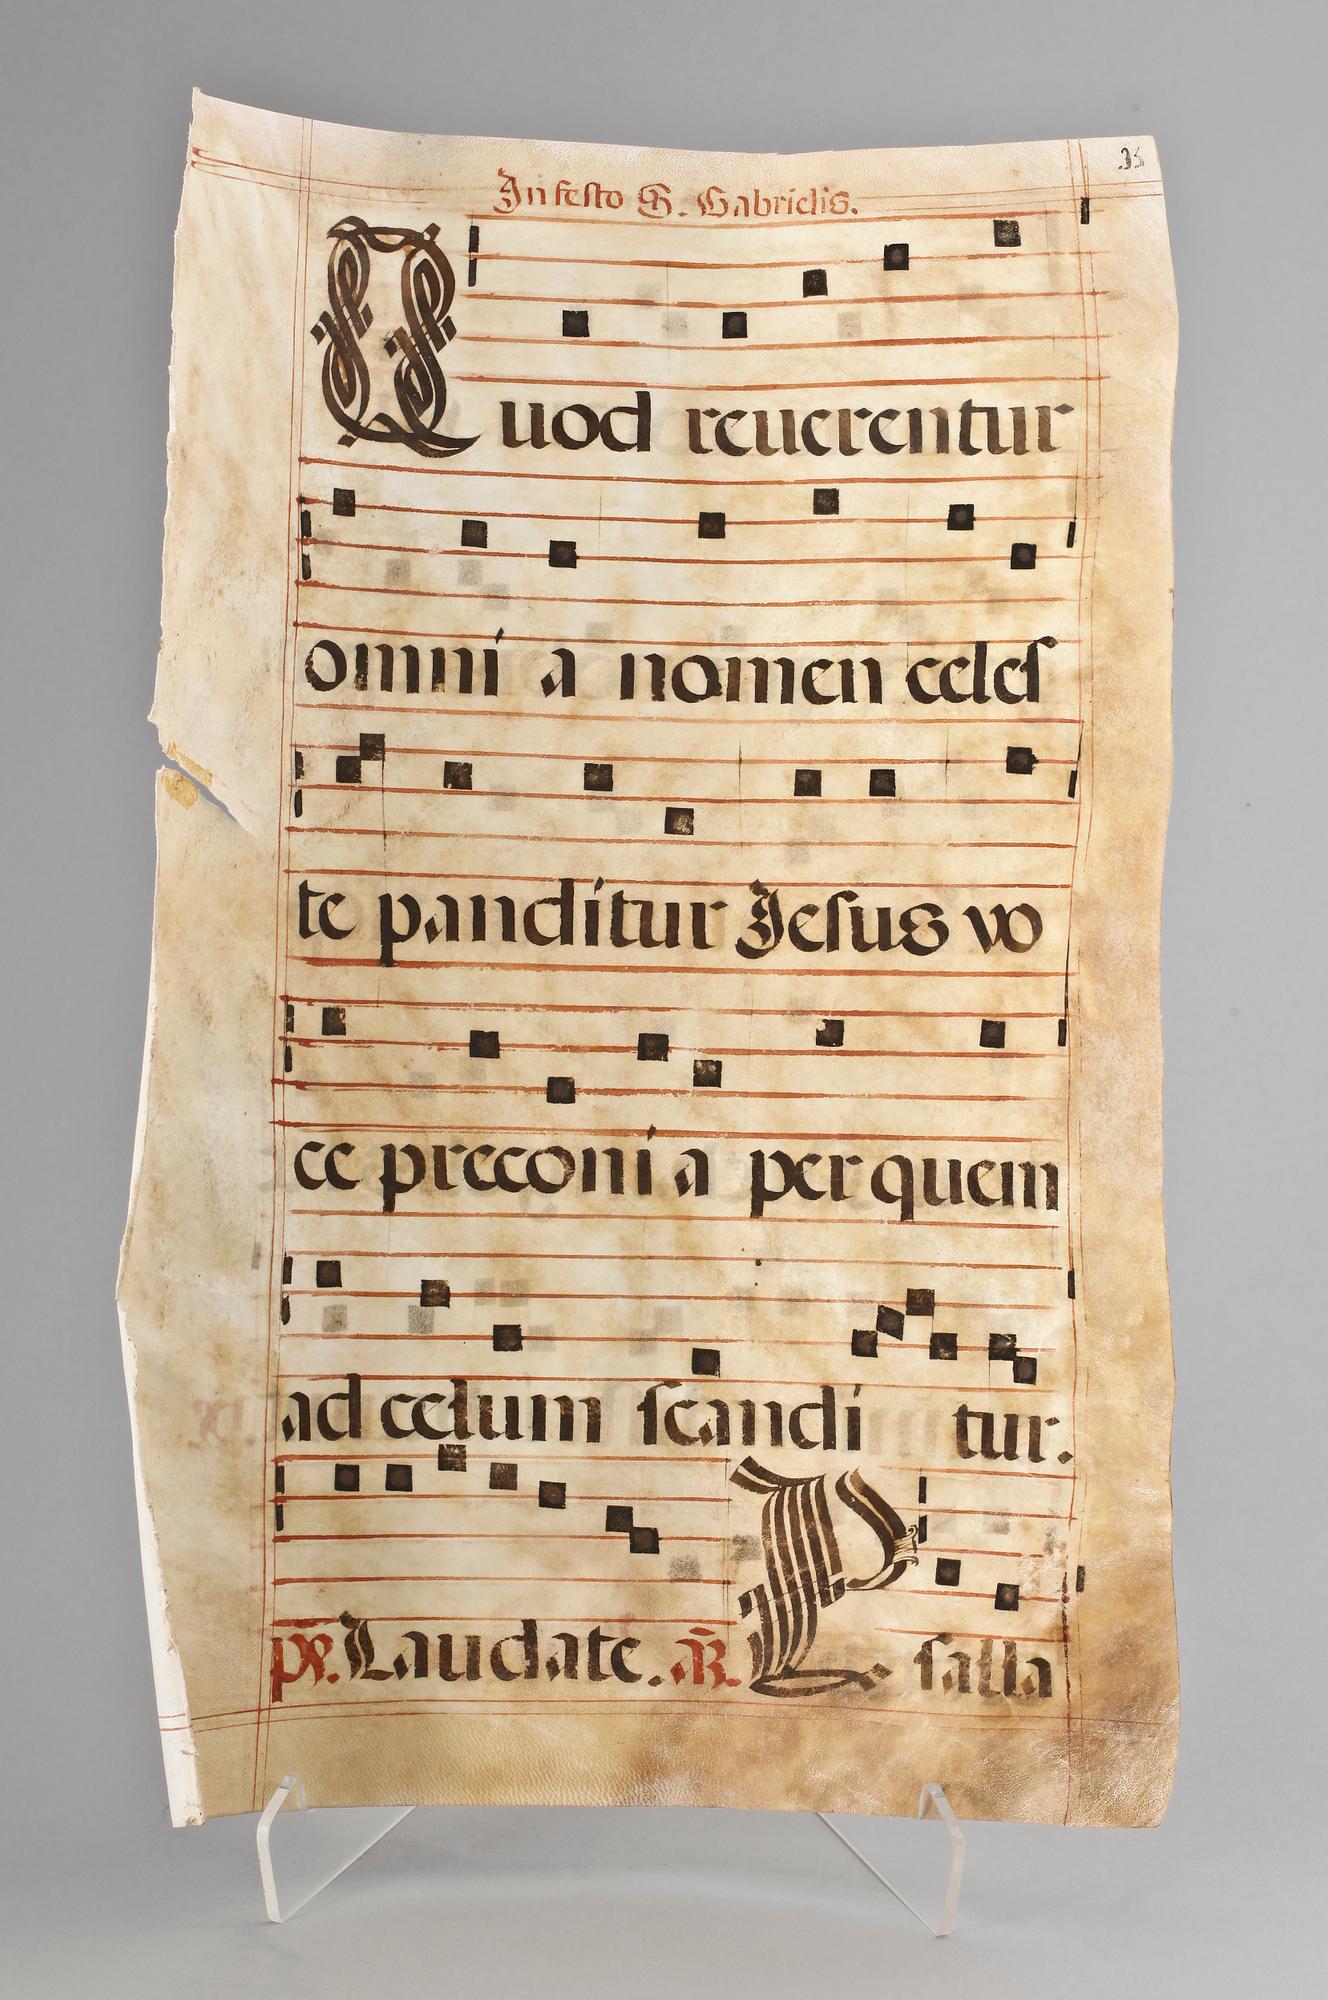 35
In festo S. Gabrielis.
Quod reuerentur
omnia nomen celes
te panditur Jesus vo
ce preconia per quem
ad celum scanditur.
ps. Laudate. añ. Psalla